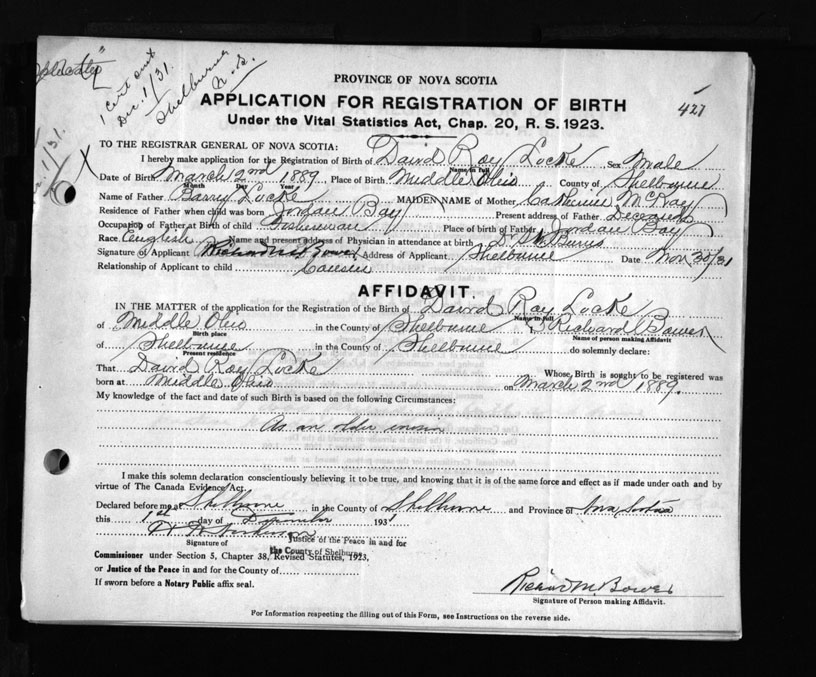 1 Cert sent
Dec. 1/31.
Shelburne
N. S.
1/31.
PROVINCE OF NOVA SCOTIA
427
APPLICATION FOR REGISTRATION OF BIRTH
Under the Vital Statistics Act, Chap. 20, R. S. 1923.
TO THE REGISTRAR GENERAL OF NOVA SCOTIA:
I hereby make application for the Registration of Birth of David Roy Locke Sex Male
Name in Full
Date of Birth March 2nd 1889 Place of Birth Middle Ohio County of Shelburne
Month Day Year
Name of Father Barry Locke MAIDEN NAME of Mother Catherine McKay
Residence of Father when child was born Jordan Bay Present address of Father Deceased
Occupation of Father at Birth of child Fisherman Place of birth of Father Jordan Bay
Race English Name and present address of Physician in attendance at birth Dr Burns
Signature of Applicant Richard M. Bower Address of Applicant Shelburne Date Nov 30/31
Relationship of Applicant to child
AFFIDAVIT.
IN THE MATTER of the application for the Registration of the Birth of David Roy Locke
Name in Full
of Middle Ohio in the County of Shelburne I Richard Bower
Birth place Name of person making Affidavit
of Shelburne in the County of Shelburne do solemnly declare:
Present residence
That David Roy Locke Whose Birth is sought to be registered was
born at Middle Ohio on March 2nd 1889.
My knowledge of the fact and date of such Birth is based on the following Circumstances:
As an older
I make this solemn declaration conscientiously believing it to be true, and knowing that it is of the same force and effect as if made under oath and by
virtue of The Canada Evidence Act.
Declared before me at Shelburne in the County of Shelburne and Province of Nova Scotia
this 1st day of December 1931
Signature of Justice of the Peace in and for
the County of Shelburne
Commissioner under Section 5, Chapter 38, Revised Statutes, 1923,
or Justice of the Peace in and for the County of
If sworn before a Notary Public affix seal.
Richard M. Bower
Signature of Person making Affidavit.
For Information respecting the filling out of this Form, see Instructions on the reverse side.